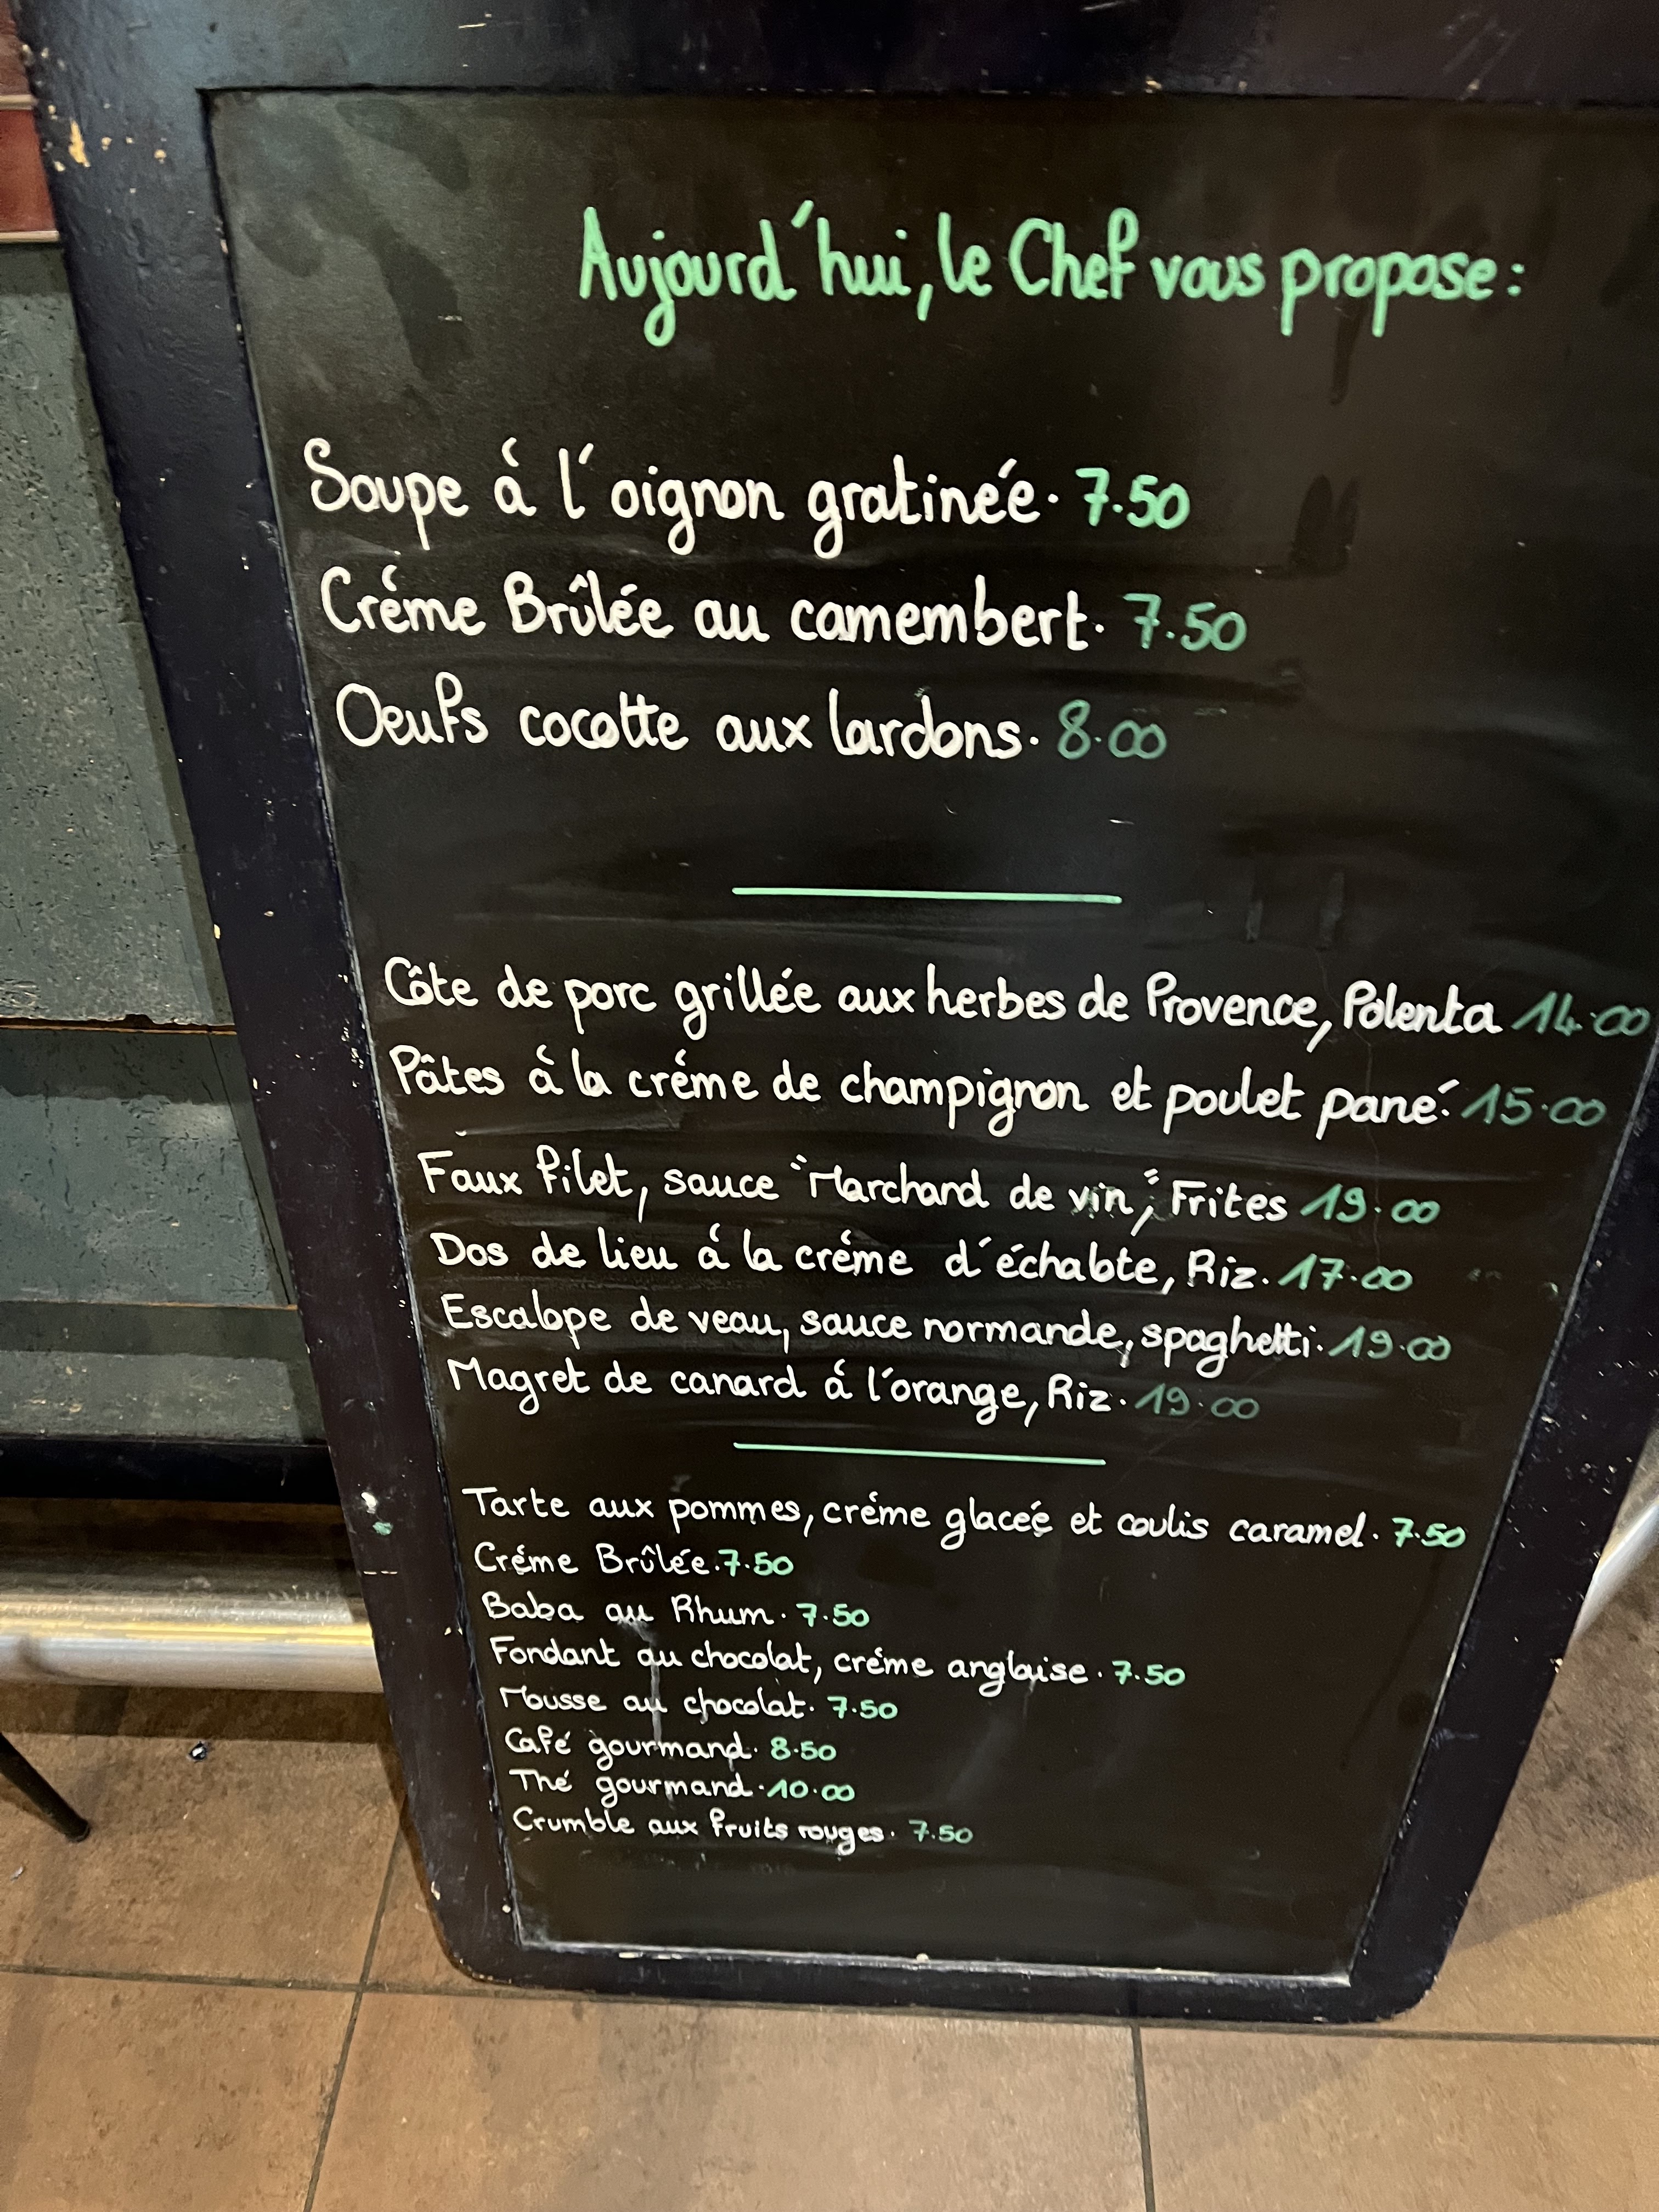 Aujourd'hui, le Chef vous propose :
Soupe á l'oignon gratinée. 7.50
Créme Brûlée au camembert. 7.50
Oeufs cocotte aux lardons. 8.00
Côte de porc grillée aux herbes de Provence, Polenta 14.00
Pâtes á la créme de champignon et poulet pané. 15.00
Faux filet, sauce "Marchand de vin", Frites 19.00
Dos de lieu á la créme d'échalote, Riz. 17.00
Escalope de veau, sauce normande, spaghetti. 19.00
Magret de canard á l'orange, Riz. 19.00
Tarte aux pommes, créme glacée et coulis caramel. 7.50
Créme Brûlée. 7.50
Baba au Rhum. 7.50
Fondant au chocolat, créme anglaise. 7.50
Mousse au chocolat. 7.50
Café gourmand. 8.50
Thé gourmand. 10.00
Crumble aux fruits rouges. 7.50